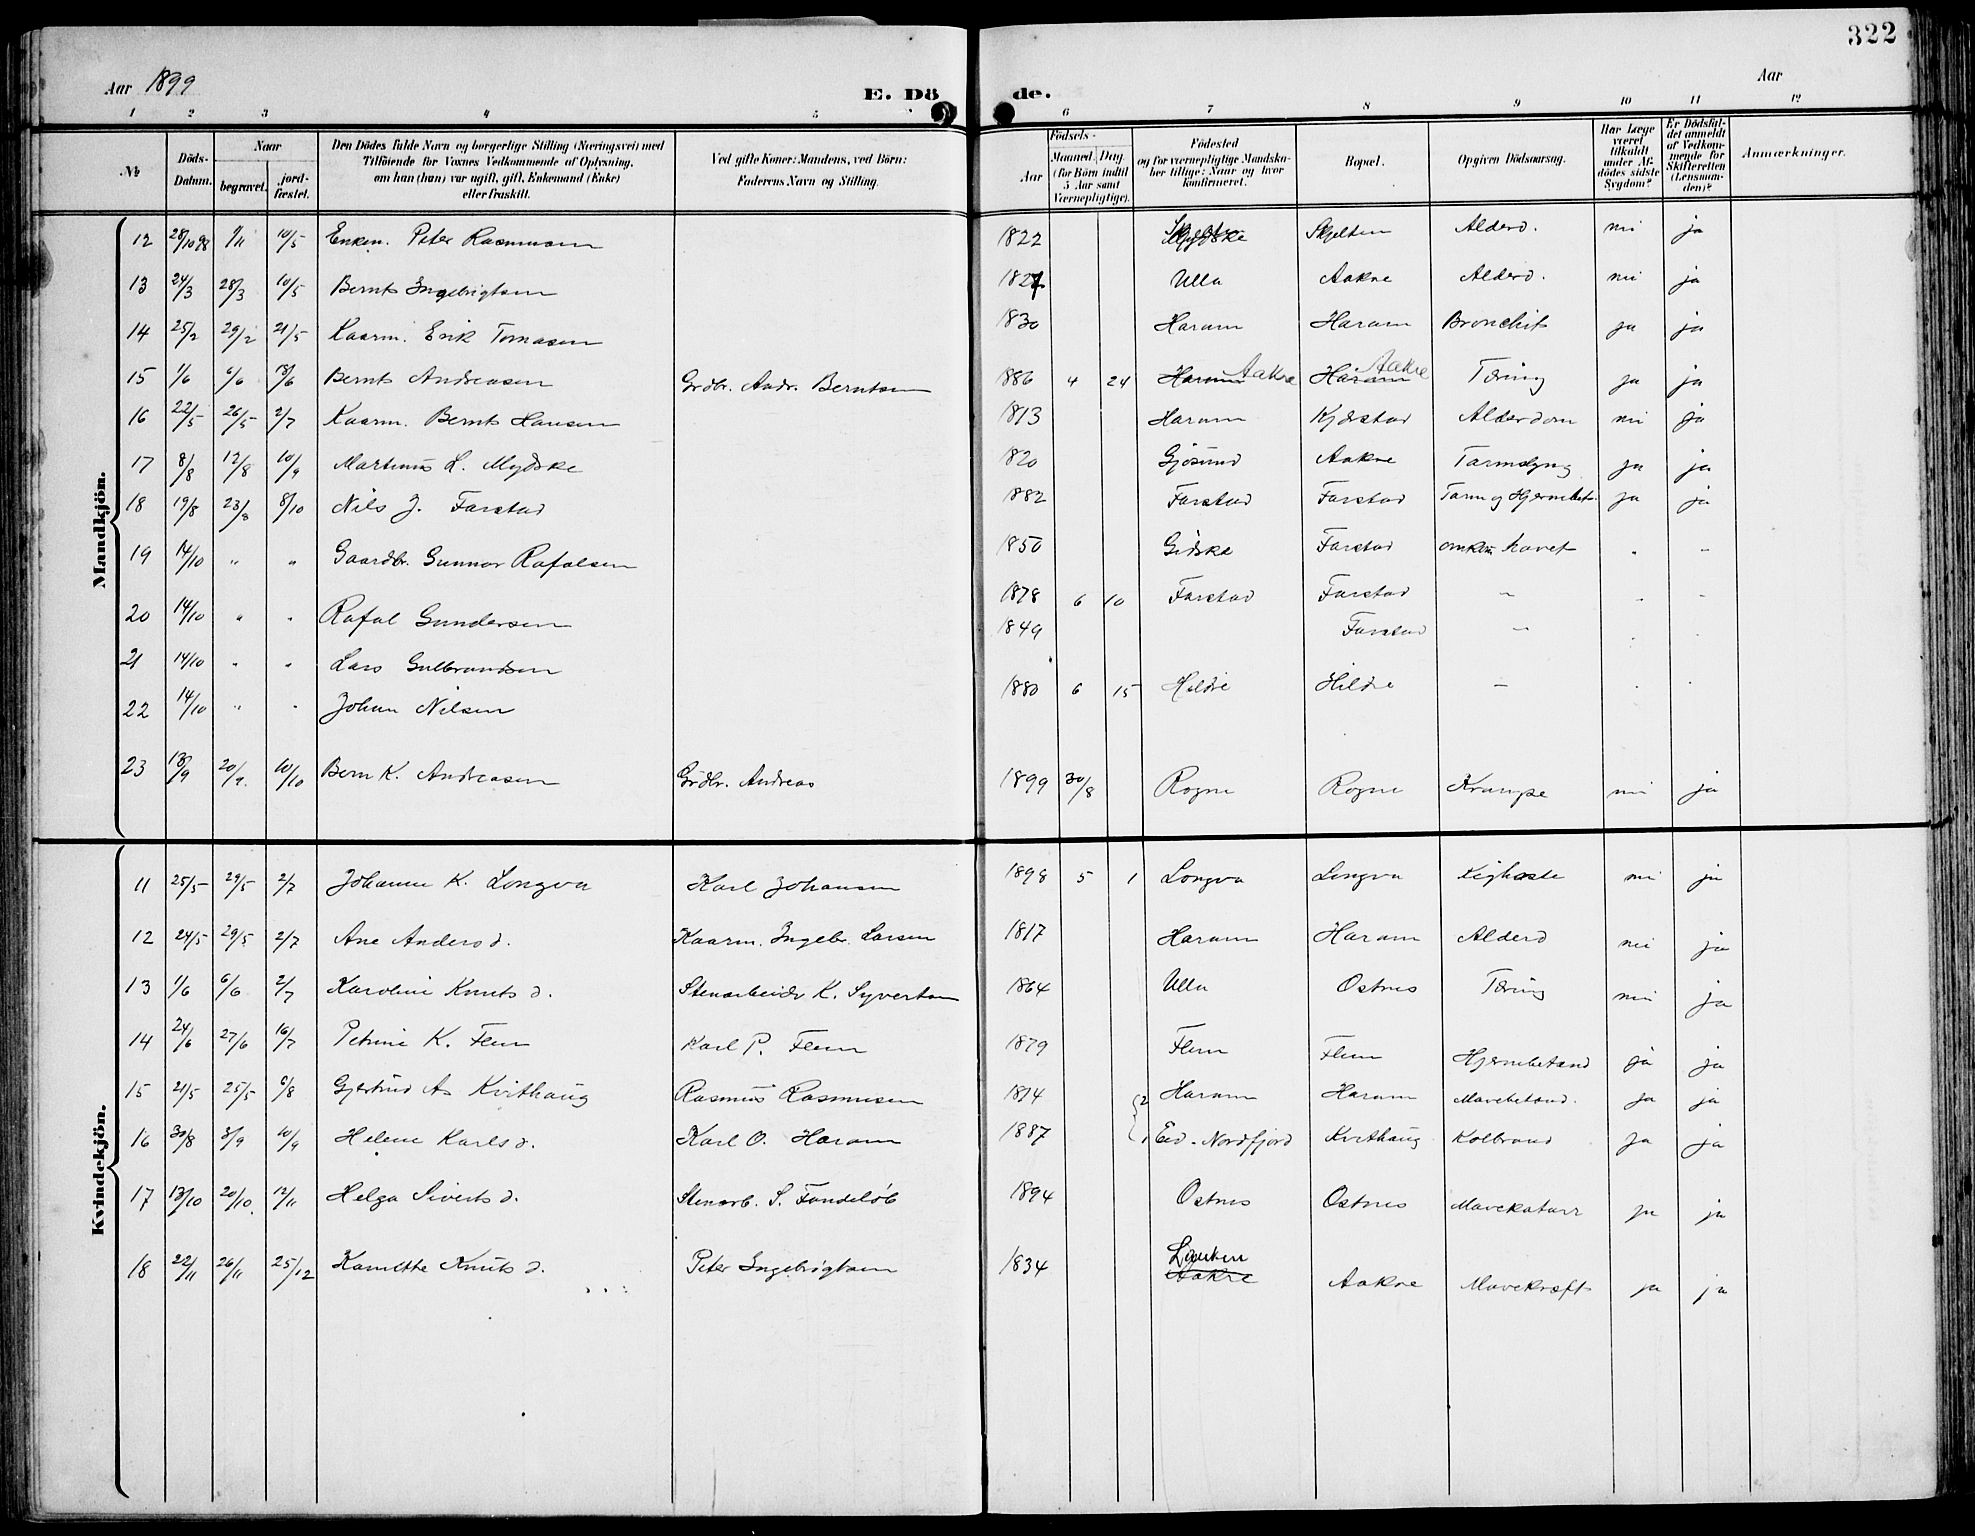 322
Aar 1899 E. Dö de. Aar
1 2 3 4 5 6 7 8 9 10 11 12
№
Döds-Datum.
Naar
begravet.
jordfæstet.
Den Dödes fulde Navn og borgerlige Stilling (Næringsvei) med
Tilföiende for Voxnes Vedkommende af Oplysning,
om han (hun) var ugift, gift, Enkemand (Enke)
eller fraskilt.
Ved gifte Koner: Mandens, ved Börn:
Faderens Navn og Stilling.
Födsels-
Aar
Maaned. Dag.
(for Börn indtil
5 Aar samt
Værnepligtige).
Födested
og for værnepligtige Mandska-
ber tillige: Naar og hvor
konfirmeret.
Bopæl.
Opgiven Dödsaarsag.
Har Læge
været
tilkaldt
under Af-
dödes sidste
Sygdom?
Er Dödsfal-
det anmeldt
af Vedkom-
mende for
Skifteretten
(Lensman-
den)?
Anmærkninger.
Mandkjön.
12 28/10 98 1/11 10/5 Enkem. Peter Rasmussen 1822 Skjelten Alderd. nei ja
13 24/3 28/3 10/5 Bernt Ingebrigtsen 1827 Ulla Aakre Alderd. nei ja
14 25/2 29/2 21/5 Kaarm. Erik Tomasen 1830 Haram Haram Bronchit ja ja
15 1/6 6/6 18/6 Bernt Andreasen Grdbr. Andr. Berntsen 1886 4 24 Haram Aakre Haram Aakre Tæring ja ja
16 22/5 26/5 2/7 Kaarm. Bernt Hansen 1813 Haram Kjerstad Alderdom nei ja
17 8/8 12/8 10/9 Martinus L. Mydske 1820 Gjøsund Aakre Tarmslyng ja ja
18 19/8 23/8 8/10 Nils J. Farstad 1882 Farstad Farstad Tarm og Hjernebet. ja ja
19 14/10 " " Gaardbr. Gunnar Rafalsen 1850 Gidske Farstad omkom havet " -
20 14/10 " " Rafal Gundersen 1878 6 10 Farstad Farstad - - -
21 14/10 " " Lars Gulbrandsen 1849 Farstad -
22 14/10 " " Johan Nilsen 1880 6 15 Hildre Hildre -
23 18/9 20/9. 10/10 Bern K. Andreasen Grdbr. Andreas 1899 30/8 Rogne Rogne Krampe nei ja
Kvindekjön.
11 25/5 29/5 2/7 Johanne K. Longva Karl Johansen 1898 5 1 Longva Longva Kighoste nei ja
12 24/5 29/5 2/7 Ane Anders d. Kaarm. Ingebr. Larsen 1817 Haram Haram Alderd nei ja
13 1/6 6/6 2/7 Karoline Knuts d. Stenarbeider K. Syvertsen 1864 Ulla Ostnes Tæring nei ja
14 24/6 27/6 16/7 Petrine K. Flem Karl P. Flem 1879 Flem Flem Hjernebetænd ja ja
15 21/5 25/5 6/8 Gjertrud A. Kvithaug Rasmus Rasmussen 1814 2 Haram Haram Mavebetænd. ja ja
16 30/8 3/9 10/9 Helene Karls d. Karl O. Haram 1887 1 Eid - Nordfjord Kvithaug Kolbrand ja ja
17 13/10 20/10. 12/11 Helga Siverts d. Stenarb. S. Fondeløb 1894 Ostnes Ostnes Mavekatarr ja ja
18 22/11 26/11 25/12 Kanutte Knuts d. Peter Ingebrigtsen 1834 Aakre Aakre Mavekræft ja ja